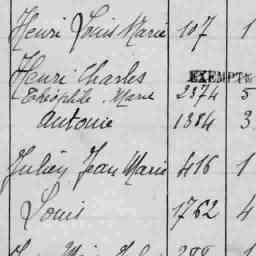 Henri Louis Marie 107 1
Henri Charles EXEMPTÉ
Théophile Marie 2374 5
Antoine 1384 3
Julien Jean Marie 416 1
Louis 1762 4